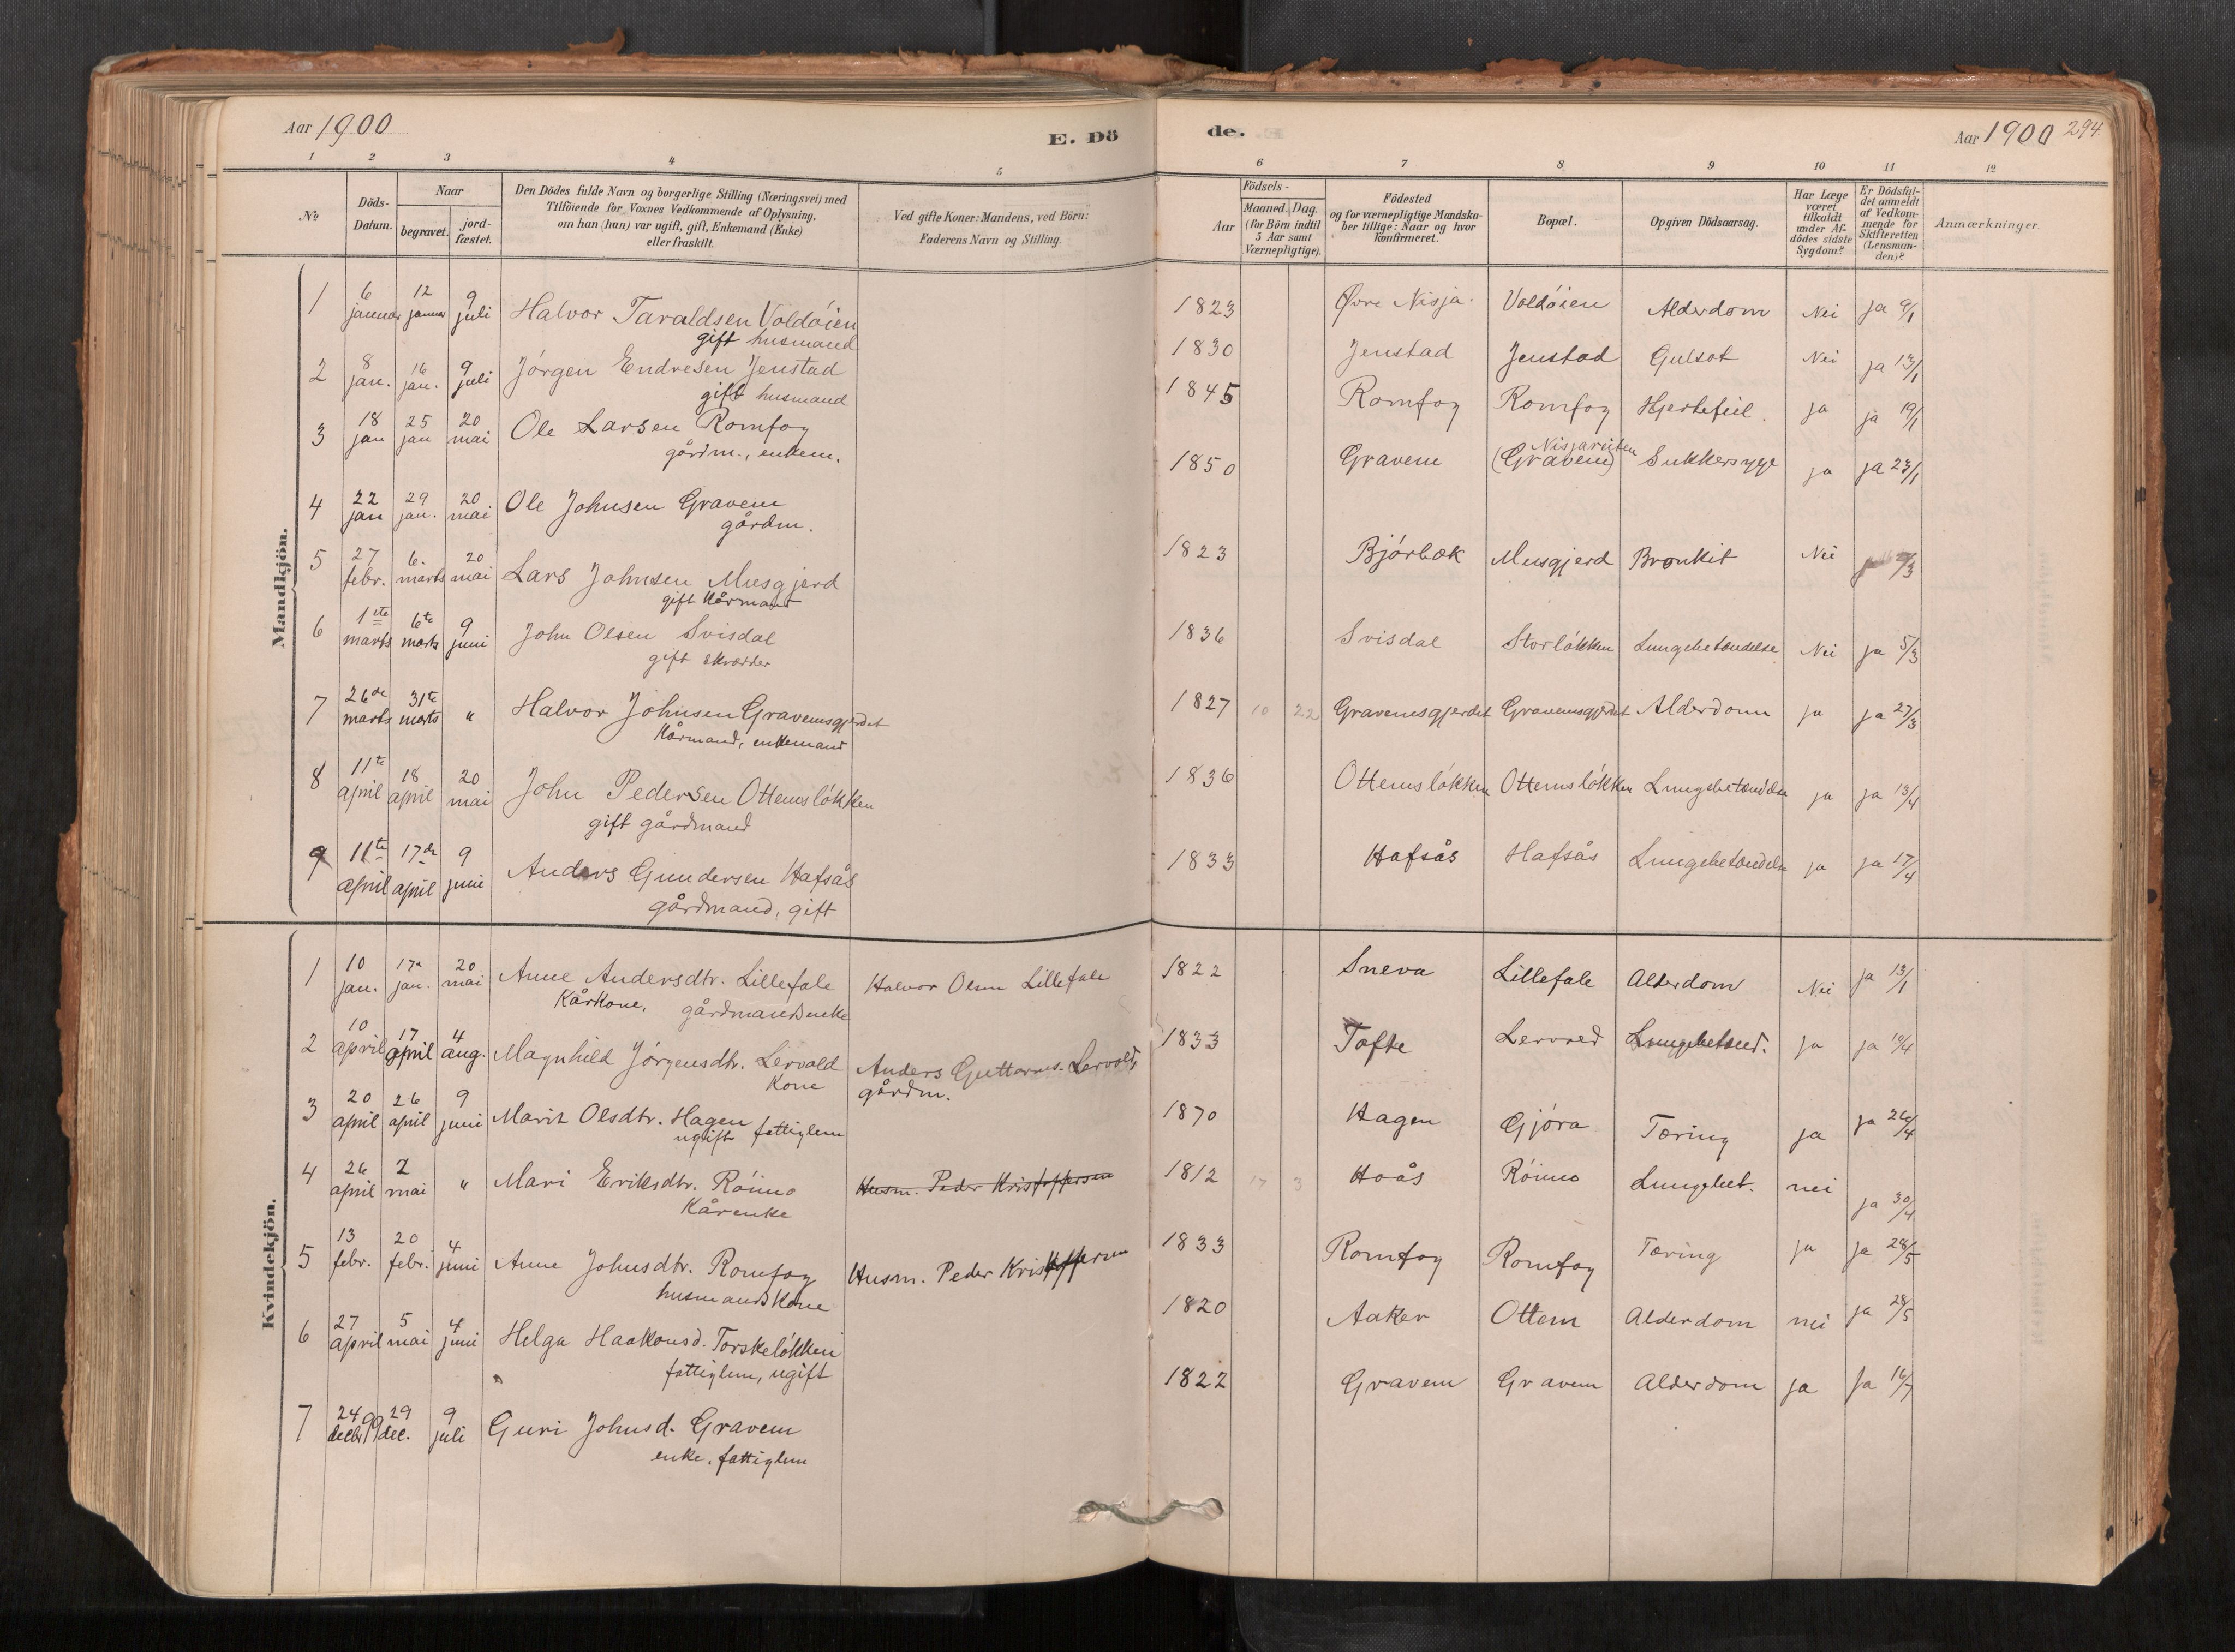 Aar 1900
E. Dö
de.
Aar 1900
294.
1 2 3 4 5 6 7 8 9 10 11 12
No
Döds-Datum.
Naar
begravet.
jord-fæstet.
Den Dödes fulde Navn og borgerlige Stilling (Næringsvei) med
Tilföiende for Voxnes Vedkommende af Oplysning,
om han (hun) var ugift, gift, Enkemand (Enke)
eller fraskilt.
Ved gifte Koner: Mandens, ved Börn:
Faderens Navn og Stilling.
Födsels-
Aar
Maaned. Dag.
(for Börn indtil
5 Aar samt
Værnepligtige).
Födested
og for værnepligtige Mandska-
ber tillige: Naar og hvor
konfirmeret.
Bopæl.
Opgiven Dödsaarsag.
Har Læge
været
tilkaldt
under Af-
dödes sidste
Sygdom?
Er Dödsfal-
det anmeldt
af Vedkom-
mende for
Skifteretten
(Lensman-
den)?
Anmærkninger.
Mandkjön.
1 6 januar 12 januar 9 juli Halvor Taraldsen Voldöien 1823 Øvre Nisja. Voldöien Alderdom Nei ja 9/1
gift husmand
2 8 jan. 16 jan. 9 juli Jörgen Endresen Jenstad 1830 Jenstad Jenstad Gulsot Nei ja 13/1
gift husmand
3 18 jan 25 jan 20 mai Ole Larsen Romfog 1845 Romfog Romfog Hjertefeil. ja ja 19/1
gårdm., enkem.
4 22 jan 29 jan. 20 mai Ole Johnsen Gravem 1850 Gravem (Gravem) Sukkersyge ja ja 23/1
gårdm.
5 27 febr. 6. marts 20 mai Lars Johnsen Musgjerd 1823 Bjórbæk Musgjerd Bronkit Nei
gift Kårmand
6 1ste marts 6te marts 9 juni John Olsen Svisdal 1836 Svisdal Storlökken Lungebetændelse Nei ja 5/3
gift skrædder
7 26de marts 31te marts " Halvor Johnsen Gravemsgjerdet 1827 10 22 Gravemsgjerdet Gravemsgjerdet Alderdom ja ja 27/3
Kårmand, enkemand
8 11te april 18 april 20 mai John Pedersen Ottemslökken 1836 Ottemslökken Ottemslökken Lungebetændelse ja ja 13/4
gift gårdmand
9 11te april 17de april 9 juni Anders Gundersen Hafsås 1833 Hafsås Hafsås Lungebetændelse ja ja 17/4
gårdmand, gift
Kvindekjön.
1 10 jan. 17de jan. 20 mai Anne Andersdtr. Lillefale Halvor Olsen Lillefale 1822 Sneva Lillefale Alderdom Nei ja 13/1
Kårkone, gårdmandsenke
2 10 april 17 april 4 aug. Magnhild Jörgensdtr. Lervold Anders Guttorms. Lervold, 1833 Tofte Lungebetænd. ja ja 10/4
Kone gårdm.
3 20 april 26 april 9 juni Marit Olsdtr. Hagen 1870 Hagen Gjöra Tæring ja ja 26/4
ugift fattiglem
4 26 april 2 mai " Mari Eriksdtr. Röimo Husm. Peder Kristoffersen 1812 17 3 Hoås Röimo Lungebet. nei ja 30/4
Kårenke
5 13 febr. 20 febr. 4 juni Anne Johnsdtr. Romfog Husm. Peder Kristoffersen 1833 Romfog Romfog Tæring ja ja 28/5
husmandskone
6 27 april 5 mai 4 juni Helga Haakonsd. Torskelökken 1820 Aaker Ottem Alderdom nei ja 28/5
fattiglem, ugift
7 24 decbr 99 29 dec. 9 juli Guri Johnsd. Gravem 1822 Gravem Gravem Alderdom ja ja 16/7
enke, fattiglem